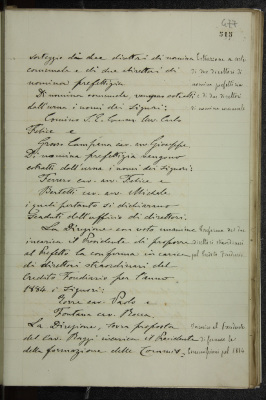 477
513
sorteggio di due direttori di nomina
comunale e di due direttori di
nomina prefettizia
Di nomina comunale, vengono estratti
dall'urna i nomi dei Signori;
Felice e
Grosso Campana cav. avv. Giuseppe.
Di nomina prefettizia vengono
estratti dall'urna i nomi dei Signori:
Ferrero cav. avv. Felice e
Bertetti cav. avv. Michele
i quali pertanto si dichiarano
scaduti dall'ufficio di direttori.
La Direzione con voto unanime
incarica il Presidente di proporre
al Prefetto la conferma in carica
di direttori straordinari del
Credito Fondiario per l'anno
1884 i Signori:
Torre cav. Paolo e
Fontana cav. Rocca
La Direzione, sopra proposta
del Cav. Bozzi incarica il Presidente
della formazione delle Commis.
Estrazione a sorte
di due direttori di
nomina prefettizia
e di due direttori
di nomina comunale
Conferma dei due
direttori straordinari
pel Credito Fondiario
Incarico al Presidente
di formare le
Commissioni pel 1884